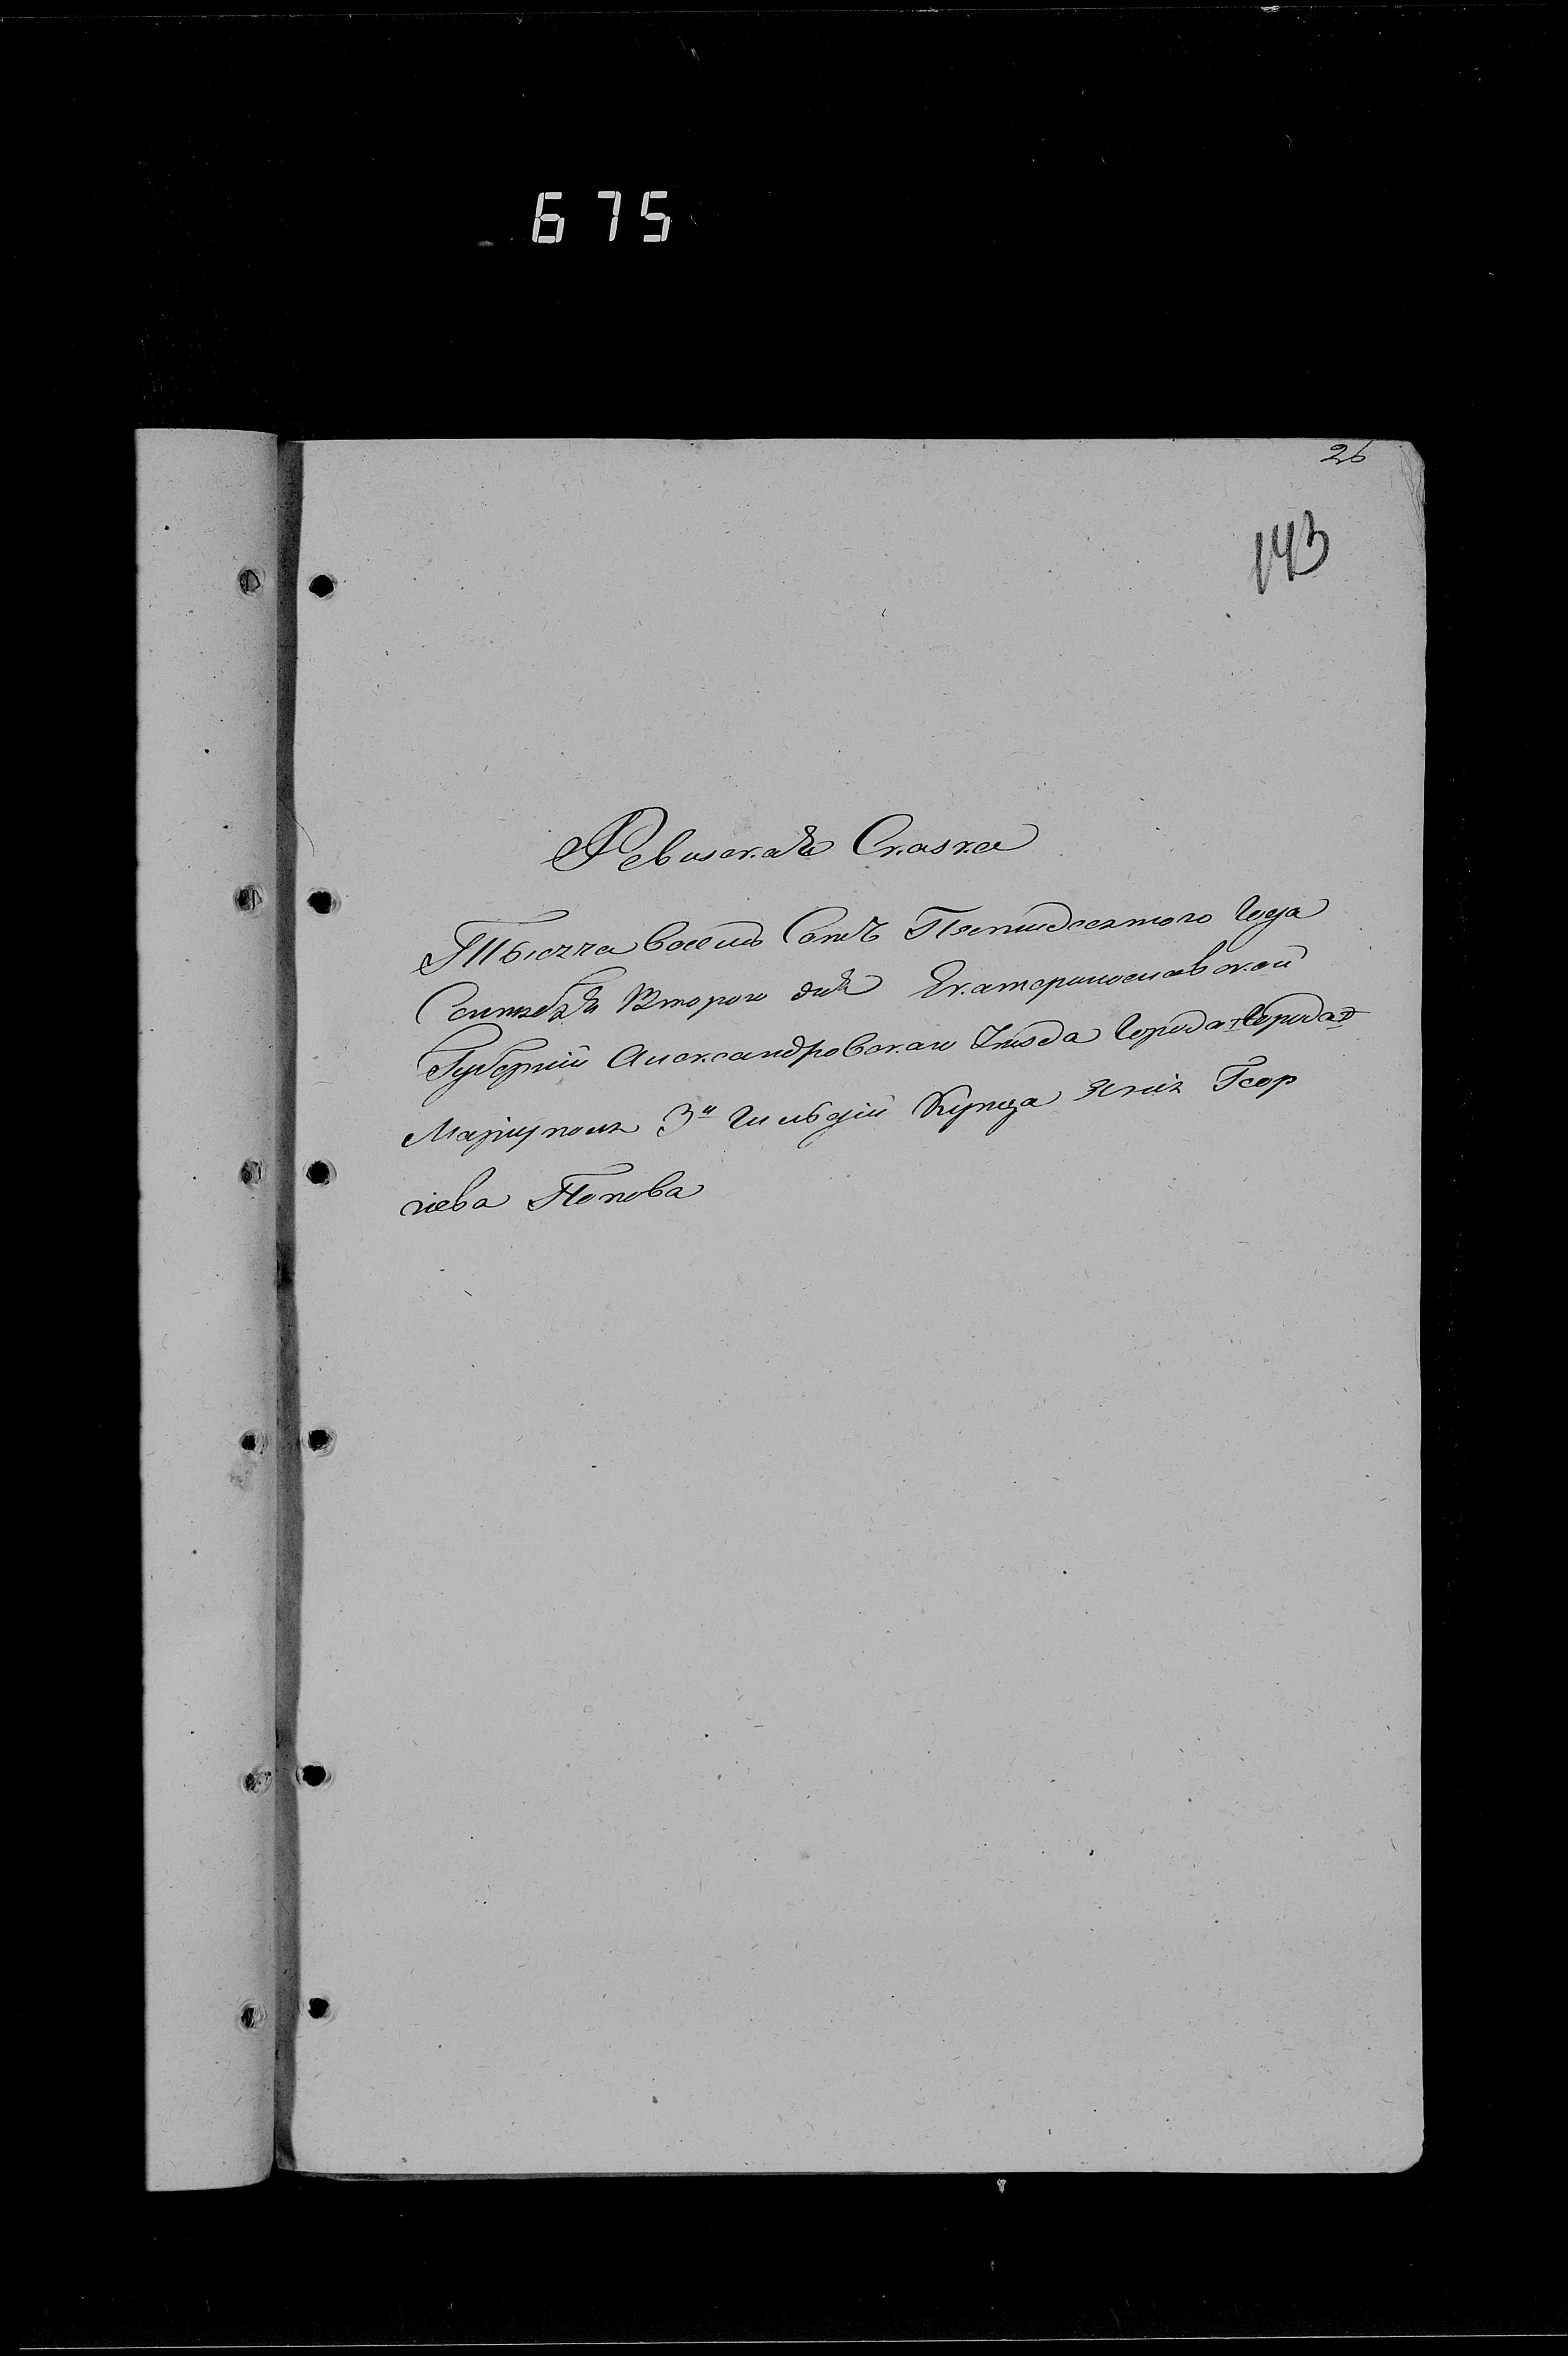 675
26
143
Ревизская Сказка
Тысяча восемь Сотъ Пятидесятого Года
Сентября Второго дня Екатеринославской
Губерніи Александровскаго Уезда Города Города
Маріуполя 3й Гильдіи Купца Геор
гіева Попова